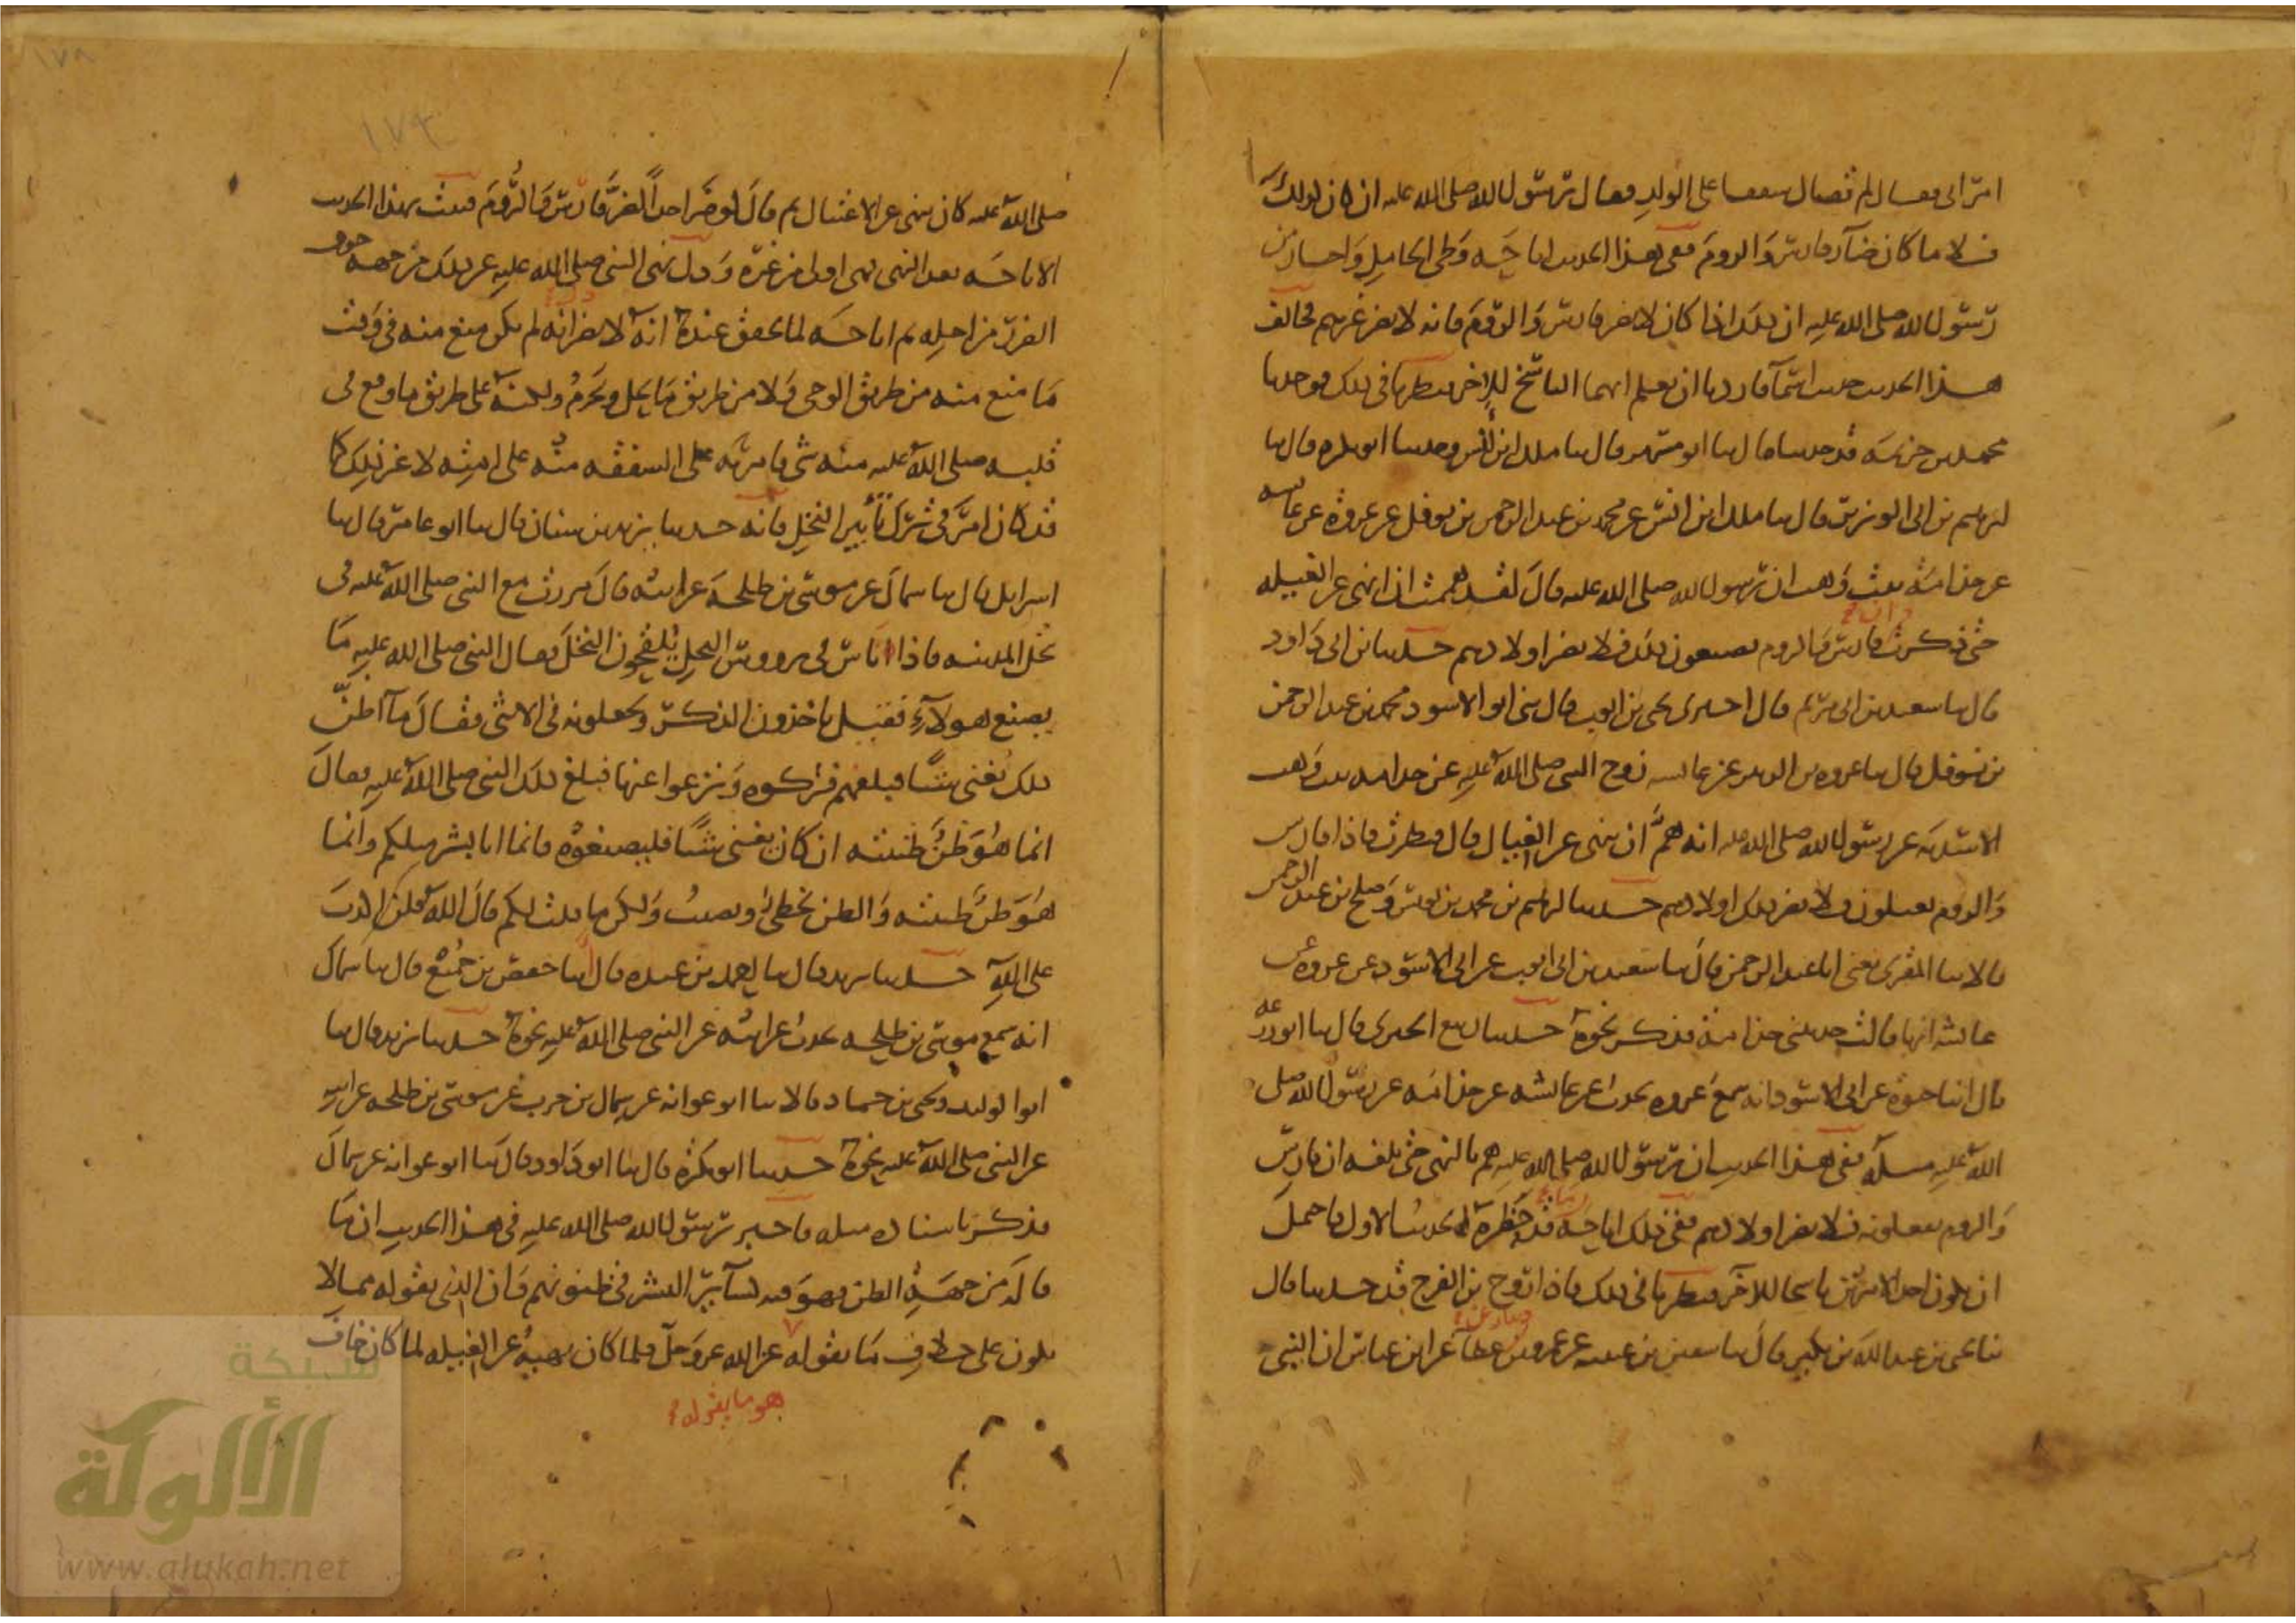 امراتى فقال لم فقال شفقا على الولد فقال رسول الله صلى الله عليه ان كان لذلك
فلا ما كان ضار فارس والروم ففى هذا الحديث اباحه وطى الحامل واخبار من
رسول الله صلى الله عليه ان ذلك اذا كان لا يضر فارس والروم فانه لا يضر غيرهم فخالف
هذا الحديث حديث اسما فاردنا ان نعلم ايهما الناسخ للاخر فنظرنا فى ذلك فوجدنا
محمد بن خزيمه قد حدثنا قال ثنا ابو مسهر قال ثنا ملك ابن انس وحدثنا ابو بكره قال ثنا
ابرهيم بن ابى الوزير قال ثنا ملك ابن انس عن محمد بن عبد الرحمن بن نوفل عن عروة عن عائشه
عن جذامة بنت وهب ان رسول الله صلى الله عليه قال لقد هممت ان انهى عن الغيله
حتى ذكرت ان فارس والروم يصنعون ذلك فلا يضر اولادهم حدثنا ابن ابى داود
قال ثنا سعيد بن ابى مريم قال اخبرنى يحيى بن ايوب قال ثنى ابو الاسود محمد بن عبد الرحمن
بن نوفل قال ثنا عروه بن الزبير عن عائشه زوج النبى صلى الله عليه عن جدامه بنت وهب
الاسديه عن رسول الله صلى الله عليه انه هم ان ينهى عن الغيال قال فنظرت فاذا فارس
والروم يغيلون ولا يضر ذلك اولادهم حدثنا ابرهيم بن محمد بن يونس وصلح بن عبد الرحمن
قالا ثنا المقرى يعنى ابا عبد الرحمن قال ثنا سعيد بن ابى ايوب عن ابى الاسود عن عروه عن
عائشه انها قالت حدثتنى جذامة فذكر نحوه حدثنا ربيع الجيزى قال ثنا ابو زرعه
قال انبا حيوة عن ابى الاسود انه سمع عروه يحدث عن عائشه عن جذامه عن رسول الله صلى
الله عليه مثله ففى هذا الحديث ان رسول الله صلى الله عليه هم بالنهى حتى بلغه ان فارس
والروم يفعلونه فلا يضر اولادهم ففى ذلك اباحه ما قد حظره الحديث الاول فاحتمل
ان يكون احد الامرين ناسخا للاخر فنظرنا فى ذلك فاذا روح بن الفرج قد حدثنا قال
ثنا يحيى بن عبد الله بن بكير قال ثنا سفين بن عيينه عن عمرو بن دينار عن عطا عن ابن عباس ان النبى
صلى الله عليه كان ينهى عن الاغتيال ثم قال لو ضر احدا لضر فارس والروم فثبت بهذا الحديث
الاباحه بعد النهى فهى اولى من غيره ودل نهى النبى صلى الله عليه عن ذلك من جهه خوف
الضرر من اجله ثم اباحه لما تحقق عنده انه لا يضر دل انه لم يكن منع منه فى وقت
ما منع منه من طريق الوحى ولا من طريق ما يحل ويحرم ولكنه على طريق ما وقع فى
قلبه صلى الله عليه منه شى فامر به على الشفقه منه على امته لا غير ذلك كما
قد كان امر فى ترك تأبير النخل فانه حدثنا يزيد بن سنان قال ثنا ابو عامر قال ثنا
اسرايل قال ثنا سماك عن موسى بن طلحه عن ابيه قال مررت مع النبى صلى الله عليه فى
نخل المدينه فاذا اناس فى رووس النخل يلقحون النخل فقال النبى صلى الله عليه ما
يصنع هولآء فقيل ياخذون الذكر ويجعلونه فى الانثى فقال ما اظن
ذلك يغنى شيئا فبلغهم فتركوه ونزعوا عنها فبلغ ذلك النبى صلى الله عليه فقال
انما هو ظن ظننته ان كان يغنى شيئا فليصنعوه فانما انا بشر مثلكم وانما
هو ظن ظننته والظن يخطئ ويصيب ولكن ما قلت لكم قال الله فلن اكذب
على الله حدثنا يزيد قال ثنا احمد بن عبده قال انبا حفص بن جميع قال ثنا سماك
انه سمع موسى بن طلحه يحدث عن ابيه عن النبى صلى الله عليه نحوه حدثنا يزيد قال ثنا
ابو الوليد ويحيى بن حماد قالا ثنا ابو عوانه عن سماك بن حرب عن موسى بن طلحه عن ابيه
عن النبى صلى الله عليه نحوه حدثنا ابو بكرة قال ثنا ابو داود قال ثنا ابو عوانه عن سماك
فذكر باسناده مثله فاخبر رسول الله صلى الله عليه فى هذا الحديث ان ما
قاله من جهة الظن فهو فيه كسآئر البشر فى ظنونهم وان الذى يقوله مما لا
يكون على خلاف ما يقوله عن الله عز وجل فلما كان نهيه عن الغيله لما كان خاف
هو ما يقوله
شبكة
الألوكة
www.alukah.net